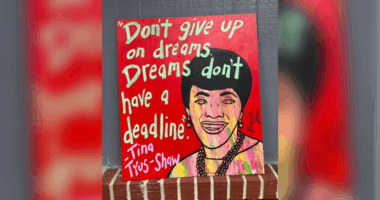 "Don't give up
on dreams.
Dreams don't
have a
deadline".
-Tina
Tyus-Shaw